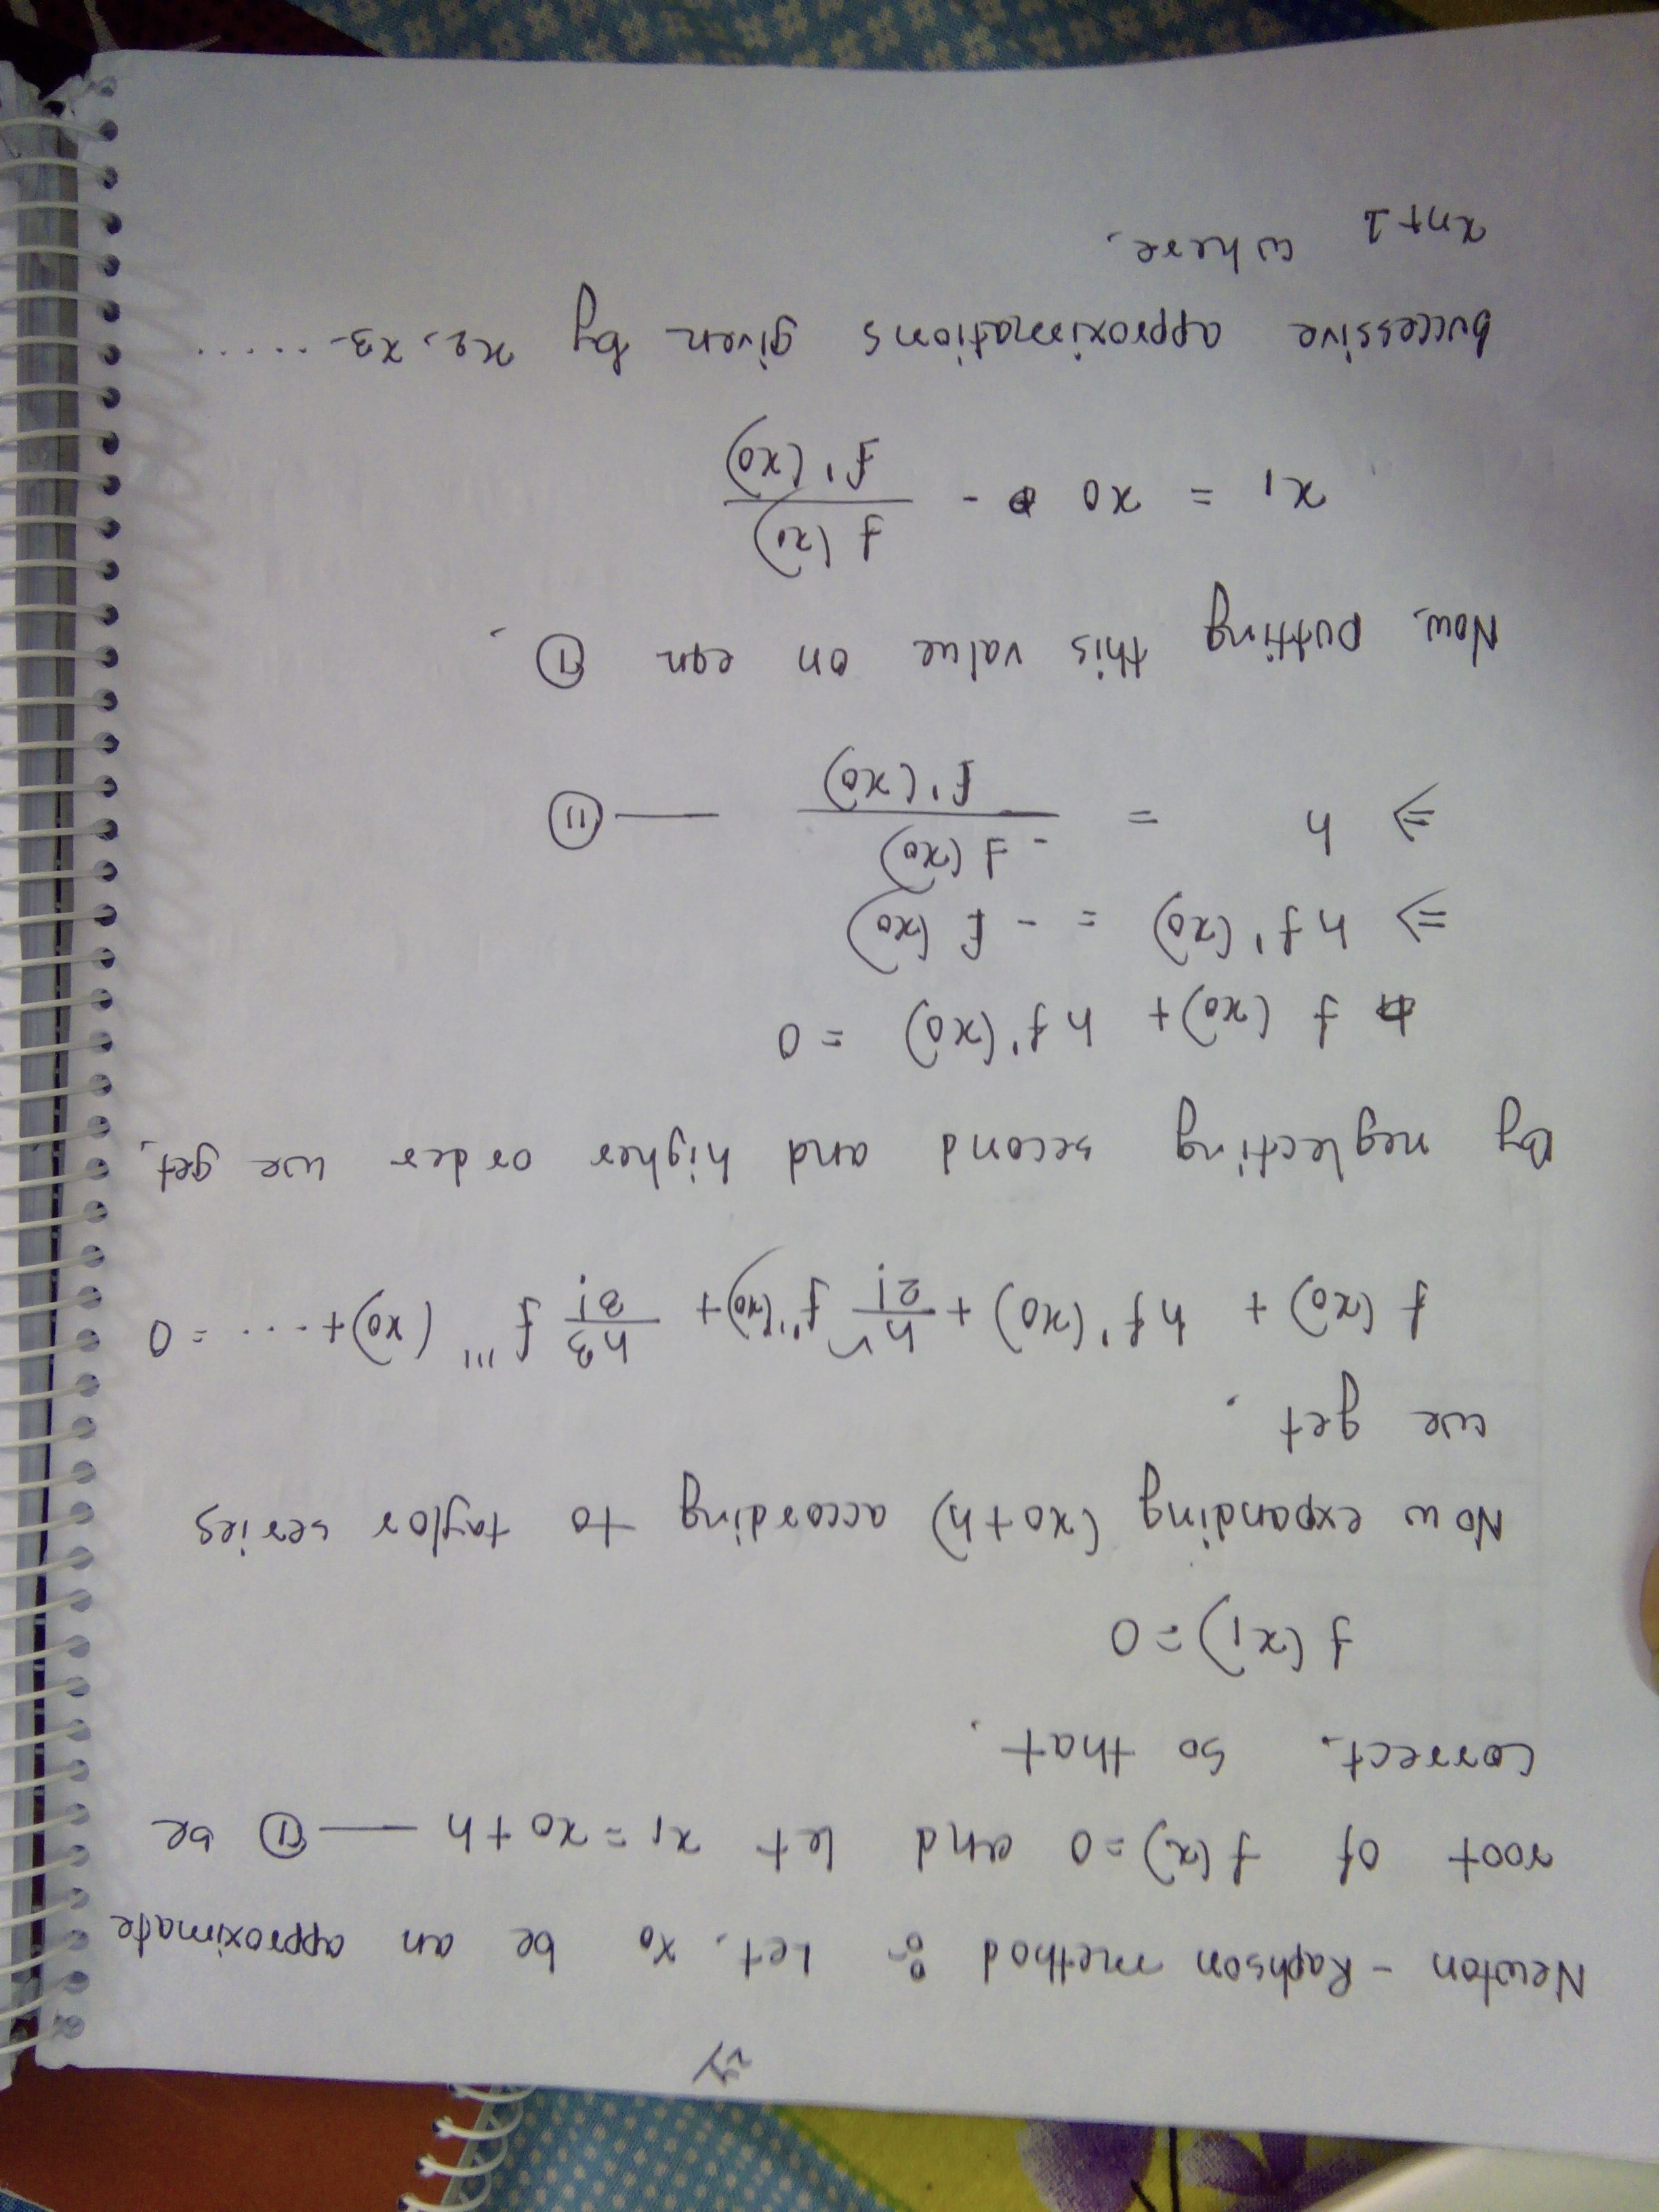 24
Newton - Raphson method :- Let, x₀ be an approximate
root of f(x) = 0 and let x₁ = x₀ + h —— ① be
correct. So that,
f(x₁) = 0
Now expanding (x₀+h) according to taylor series
we get,
f(x₀) + hf'(x₀) + h²/2! f''(x₀) + h³/3! f'''(x₀) + .... = 0
By neglecting second and higher order we get,
f(x₀) + hf'(x₀) = 0
⇒ hf'(x₀) = - f(x₀)
⇒ h = -f(x₀)/f'(x₀) —— ⑪
Now, putting this value on eqn ①,
x₁ = x₀ - f(x₀)/f'(x₀)
Successive approximations given by x₂, x₃ .....
xₙ₊₁ where,